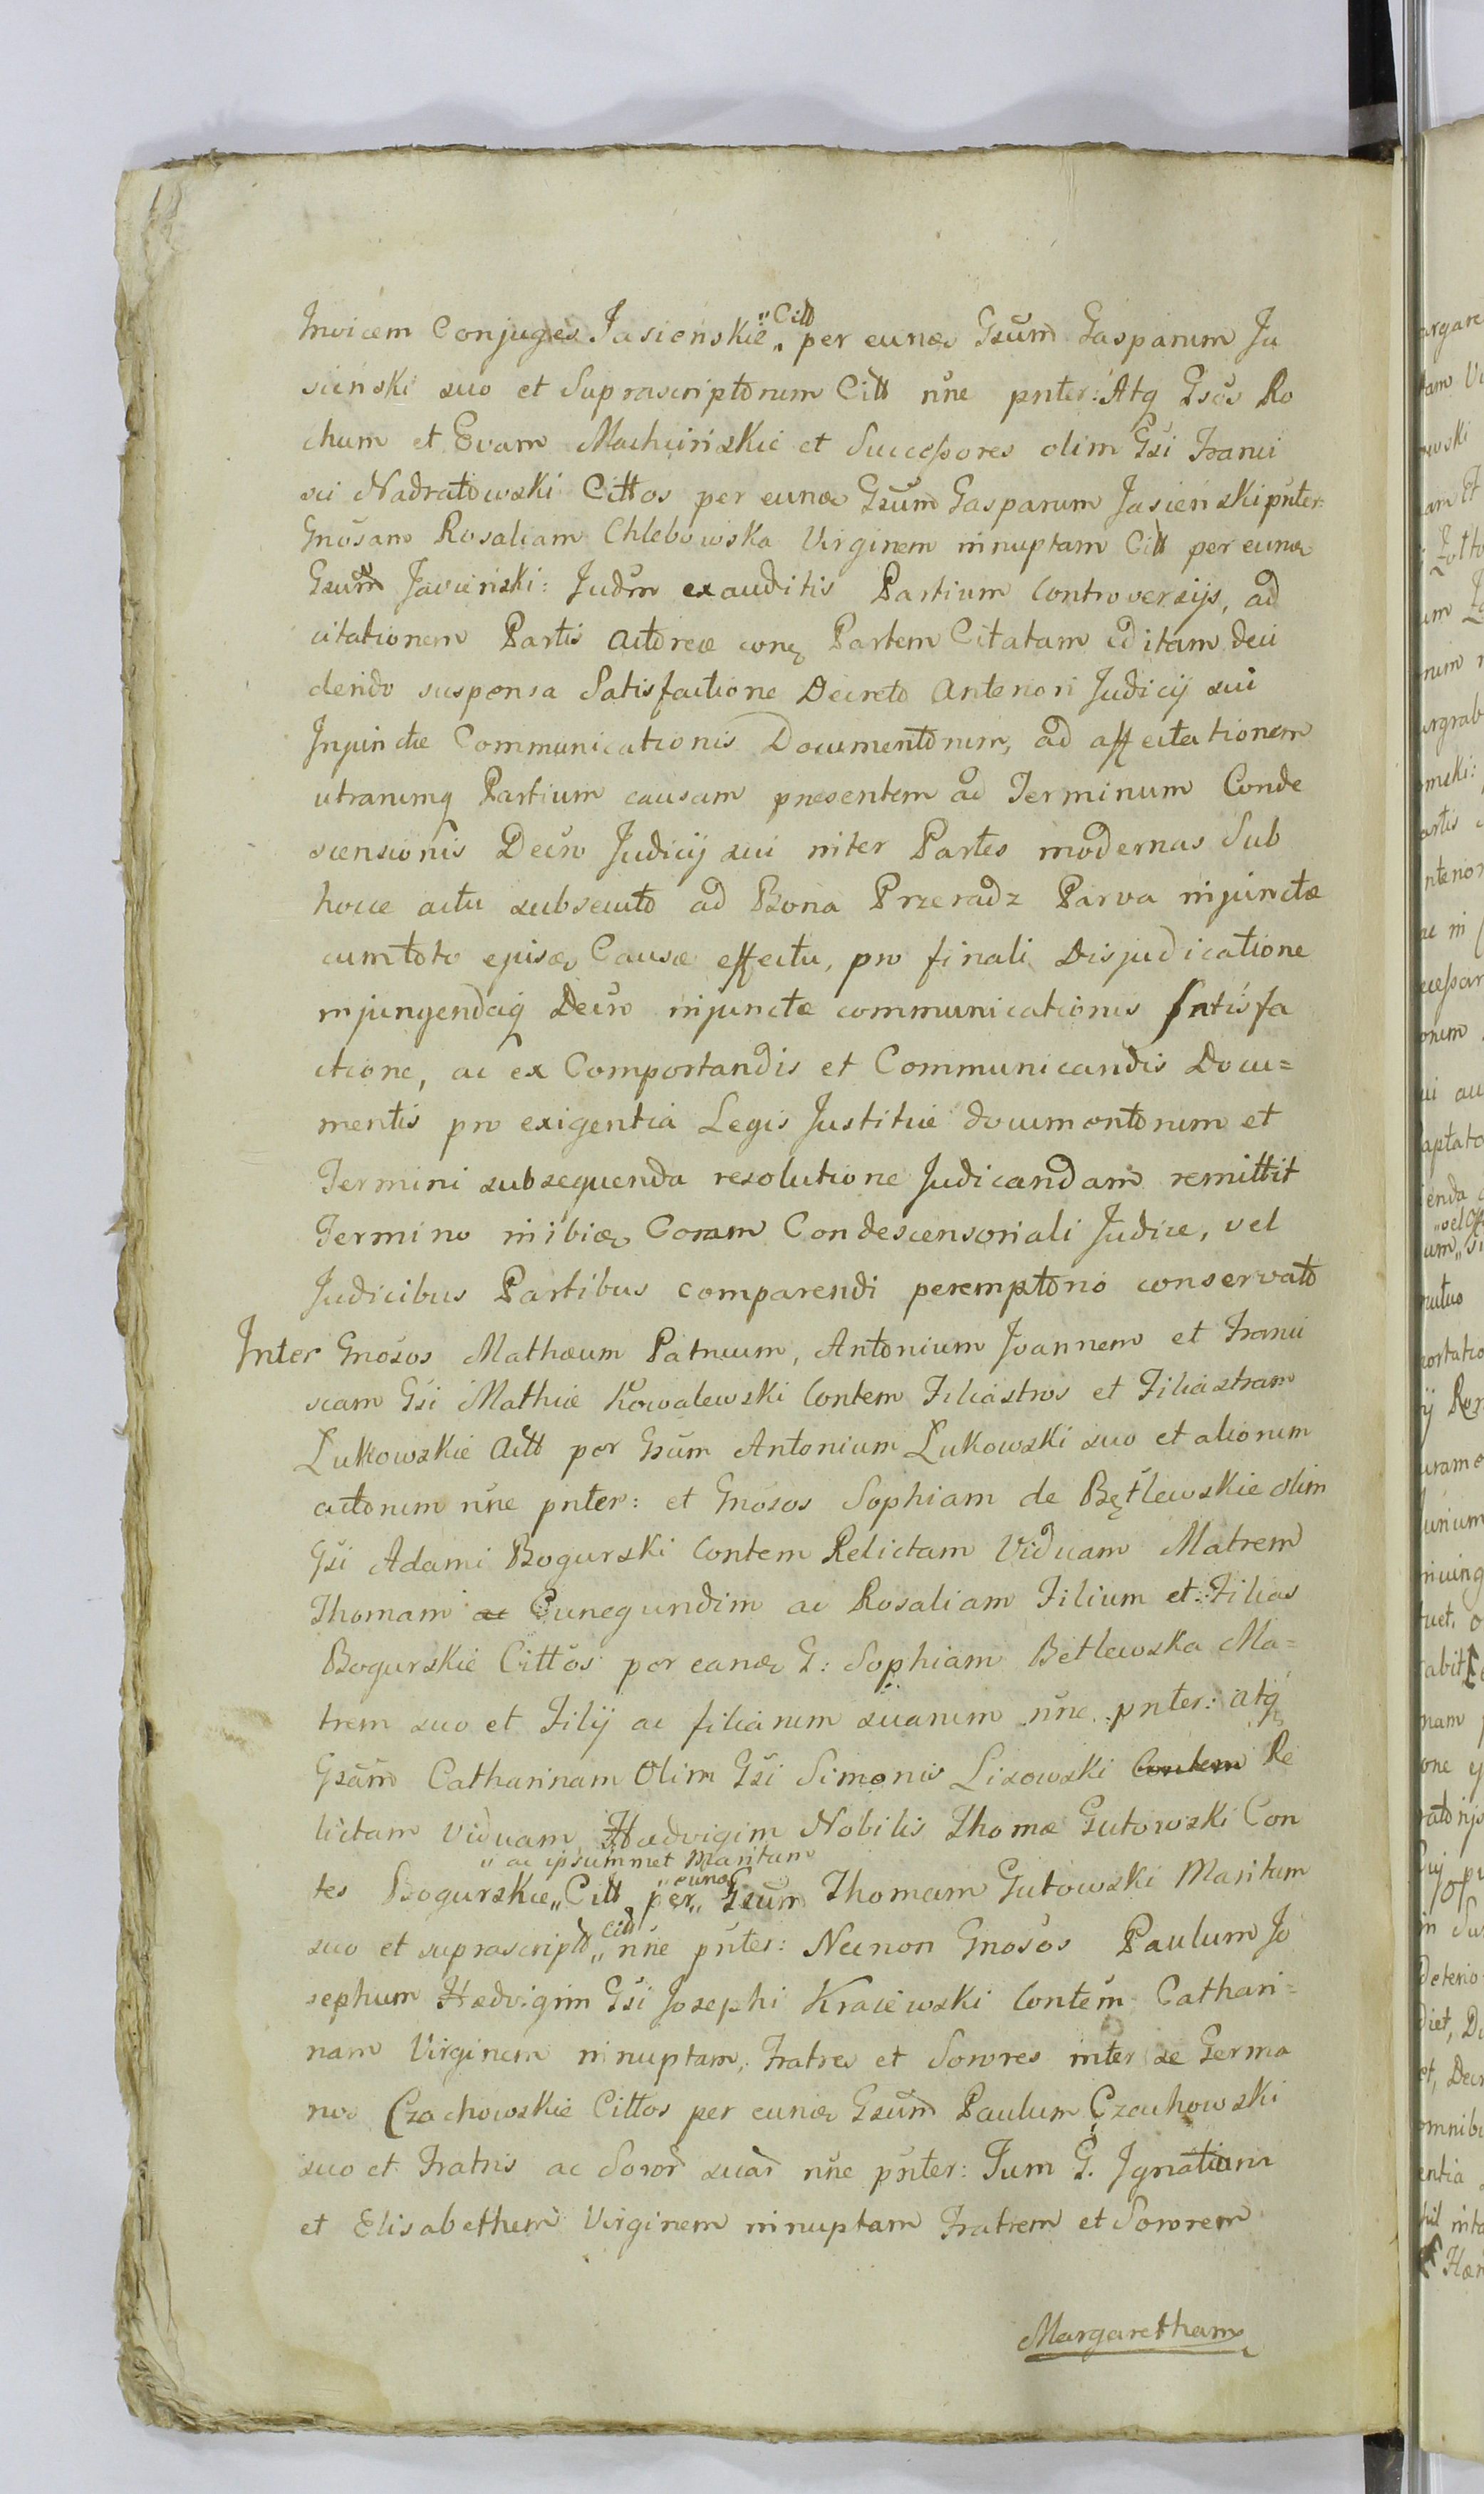 Invicem Conjuges Jasienskie „Citt„ per eund Gsum Gasparum Ja
sienski suo et Suprascriptorum Citt nne pnter: Atq Gsos Ro
chum et Evam Machcińskie et Successores olim Gsi Franci
sci Nadratowski Cittos per eund Gsum Gasparum Jasieński pnter:
Gnosam Rosaliam Chlebowska Virginem innuptam Citt per eund
Gsum Jasieński: Judm exauditis Partium Controversijs, ad
citationem Partis actoreæ conq Partem Citatam editam deci
dendo suspensa Satisfactione Decreto Anteriori Judicij sui
Injunctæ Communicationis Documentorum, ad affectationem
utranimq Partium causam presentem ad Terminum Conde
scensionis Decro Judicij sui inter Partes modernas Sub
hocce actu subsecuto ad Bona Przeradz Parva injunctæ
cum toto ejusd Causæ effectu, pro finali Disjudicatione
injungendaq Decro injunctæ communicationis Satisfa
ctione, ac ex Comportandis et Communicandis Docu=
mentis pro exigentia Legis Justitiæ documentorum et
Termini subsequenda resolutione Judicandam remittit
Termino inibid Coram Condescensoriali Judice, vel
Judicibus Partibus comparendi peremptorio conservato
Inter Gnosos Mathæum Patruum, Antonium Joannem et Franci
scam Gsi Mathiæ Kowalewski Contem Filiastros et Filiastram
Łukowskie Actt per Gsum Antonium Łukowski suo et aliorum
actorum nne pnter: et Gnosos Sophiam de Bętlewskie olim
Gsi Adami Bogurski Contem Relictam Viduam Matrem
Thomam ac Cunegundim ac Rosaliam Filium et Filias
Bogurskie Cittos per eand G: Sophiam Betlewska Ma=
trem suo et Filij ac filiarum suarum nne pnter: atq
Gsam Catharinam Olim Gsi Simonis Lisowski Contem Re
lictam Viduam Hædvigim Nobilis Thomæ Gutowski Con
„ac ipsummet Maritum
tes Bogurskie„ Citt per „eund Gsum Thomam Gutowski Maritum
suo et suprascript „Citt nne pnter: Necnon Gnosos Paulum Jo
sephum Hædvigim Gsi Josephi Kraiewski Contem Cathari=
nam Virginem innuptam, Fratres et Sorores inter se Germa
nos Czachowskie Cittos per eund Gsum Paulum Czachowski
suo et Fratris ac Soror suar nne pnter: Tum G. Ignatium
et Elisabetham Virginem innuptam Fratrem et Sororem
Margaretham